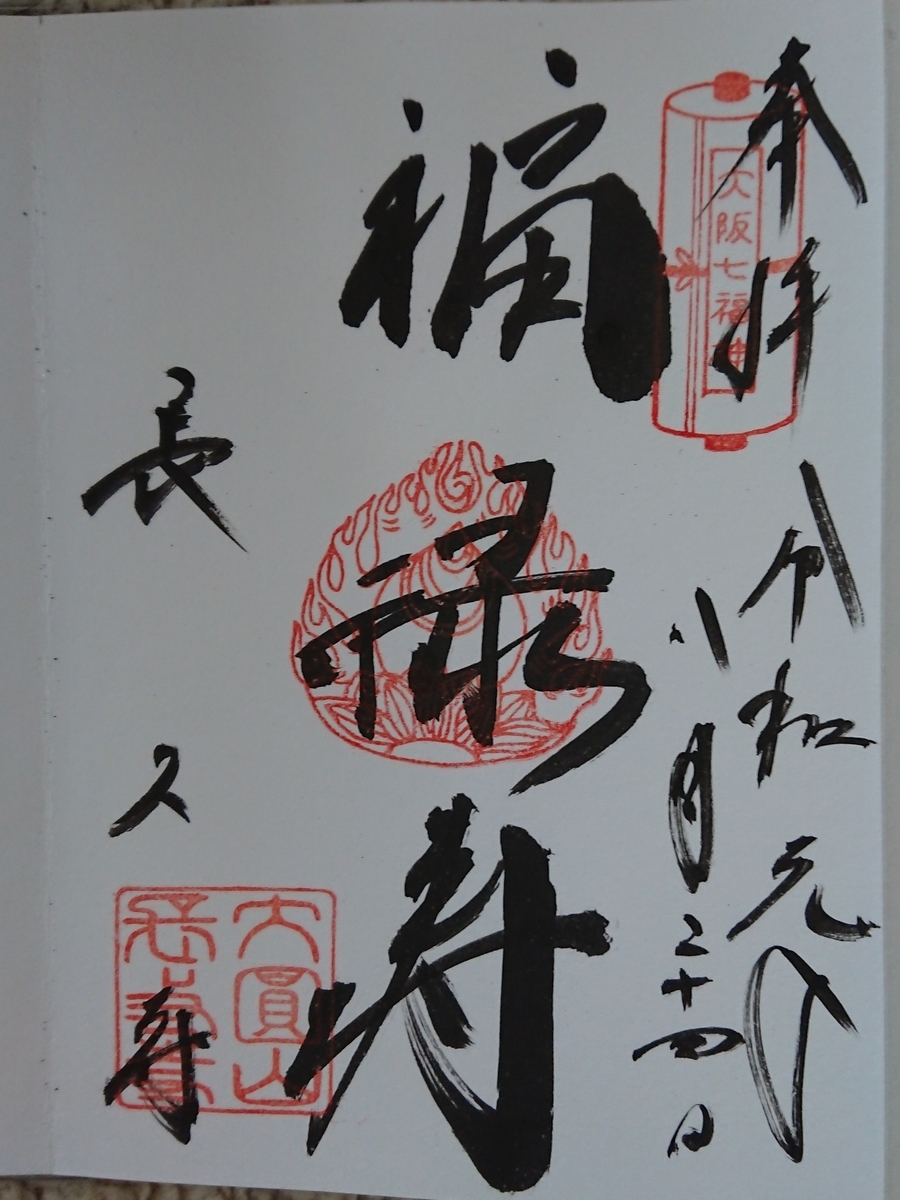 奉拝
大阪七福神
令和元年
八月二十四日
福禄寿
長久寺
大圓山